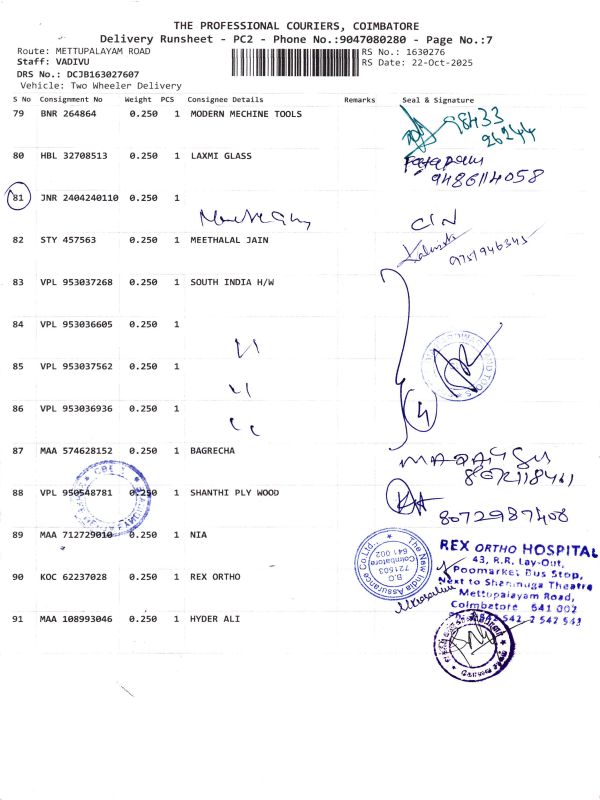 THE PROFESSIONAL COURIERS, COIMBATORE
Delivery Runsheet - PC2 - Phone No.:9047080280 - Page No.:7
Route: METTUPALAYAM ROAD
RS No.: 1630276
Staff: VADIVU
RS Date: 22-Oct-2025
DRS No.: DCJB163027607
Vehicle: Two Wheeler Delivery
S No Consignment No Weight PCS Consignee Details Remarks Seal & Signature
79 BNR 264864 0.250 1 MODERN MECHINE TOOLS
98433
26244
80 HBL 32708513 0.250 1 LAXMI GLASS
9486114058
81 JNR 2404240110 0.250 1
82 STY 457563 0.250 1 MEETHALAL JAIN
9751946345
83 VPL 953037268 0.250 1 SOUTH INDIA H/W
84 VPL 953036605 0.250 1
85 VPL 953037562 0.250 1
86 VPL 953036936 0.250 1
(4)
87 MAA 574628152 0.250 1 BAGRECHA
88 VPL 950548781 0.250 1 SHANTHI PLY WOOD
8072987408
89 MAA 712729010 0.250 1 NIA
The New India Assurance Co.Ltd.,
B.O
721503
Coimbatore
641 002
90 KOC 62237028 0.250 1 REX ORTHO
REX ORTHO HOSPITAL
43, R.R. Lay-Out,
Poomarket Bus Stop,
Next to Shanmuga Theatre
Mettupalayam Road,
Coimbatore 641 002
91 MAA 108993046 0.250 1 HYDER ALI